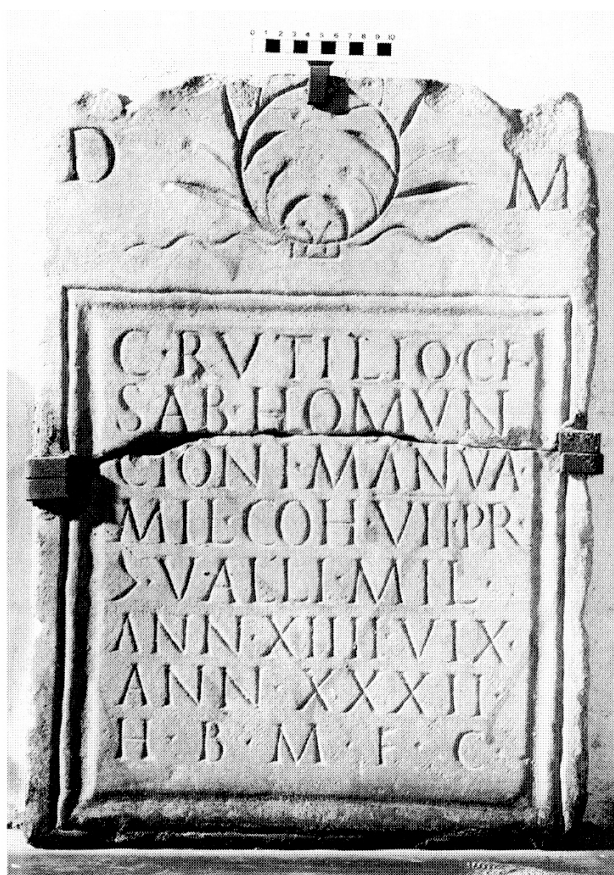 0 1 2 3 4 5 6 7 8 9 10
D M
C·RVTILIO·C·F·
SAB·HOMVN
CIONI·MANVA·
MIL·COH·VII·PR·
𐆛·VALLI·MIL·
ANN·XIIII·VIX·
ANN·XXXII·
H·B·M·F·C·